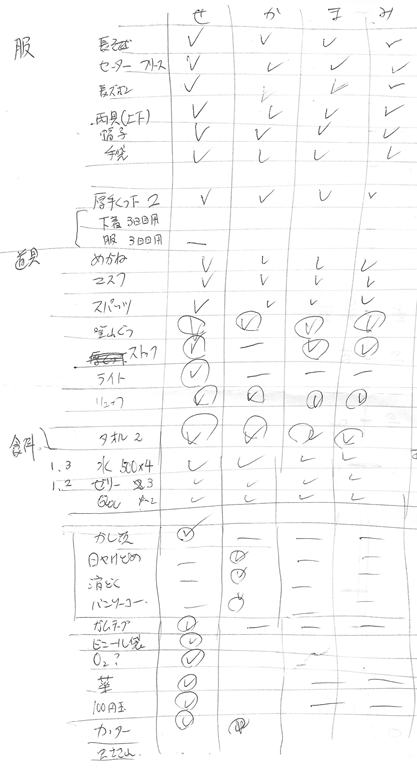 せ か ま み
服
長そで ✓ ✓ ✓ ✓
セーター フリース ✓ ✓ ✓ ✓
長ズボン ✓ ✓ ✓ ✓
雨具(上下) ✓ ✓ ✓ ✓
帽子 ✓ ✓ ✓ ✓
手袋 ✓ ✓ ✓ ✓
厚手くつ下 2 ✓ ✓ ✓ ✓
下着 3日目用
服 3日目用 —
道具
めがね ✓ ✓ ✓ ✓
マスク ✓ ✓ ✓ ✓
スパッツ ✓ ✓ ✓ ✓
登山ぐつ ✓ ✓ ✓ ✓
ストック ✓ — ✓ ✓
ライト ✓ — — —
リュック ✓ ✓ ✓ ✓
タオル 2 ✓ ✓ ✓ ✓
1.3 水 500×4 ✓ ✓ ✓ ✓
1.2 ゼリー 3 ✓ ✓ ✓ ✓
✓ ✓ ✓ ✓
✓ — — —
日やけどめ — ✓ — —
消どく — ✓ — —
バンソーコー — ✓ — —
ガムテープ ✓ — — —
ビニール袋 ✓
O₂? ✓
薬 ✓ — —
100円玉 ✓ — —
カッター